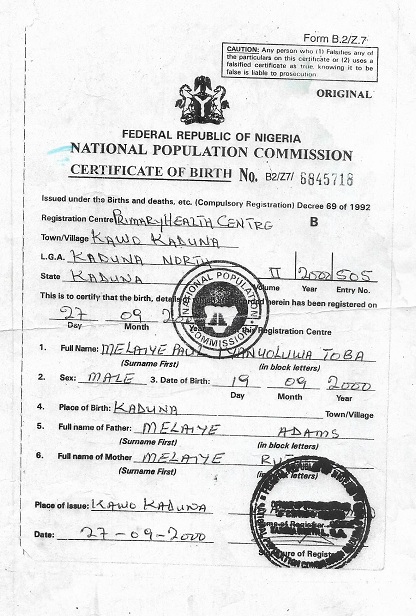 Form B.2/Z.7
CAUTION: Any person who (1) Falsifies any of
the particulars on this certificate or (2) uses a
falsified certificate as true, knowing it to be
false is liable to prosecution
ORIGINAL
FEDERAL REPUBLIC OF NIGERIA
NATIONAL POPULATION COMMISSION
CERTIFICATE OF BIRTH No. B2/Z7/ 6845718
Issued under the Births and deaths, etc. (Compulsory Registration) Decree 69 of 1992
Registration Centre PRIMARY HEALTH CENTRE B
Town/Village KAWO KADUNA
L.G.A. KADUNA NORTH
State KADUNA II 2000 505
Volume Year Entry No.
This is to certify that the birth, details of which recorded herein has been registered on
27 09
Day Month Year this Registration Centre
NATIONAL POPULATION COMMISSION
1. Full Name: MELAIYE TOBA
(Surname First) (in block letters)
2. Sex: MALE 3. Date of Birth: 19 09 2000
Day Month Year
4. Place of Birth: KADUNA Town/Village
5. Full name of Father: MELAIYE ADAMS
(Surname First) (in block letters)
6. Full name of Mother MELAIYE
(Surname First) (in block letters)
Place of issue: KAWO KADUNA
Date: 27-09-2000
Signature of Registrar